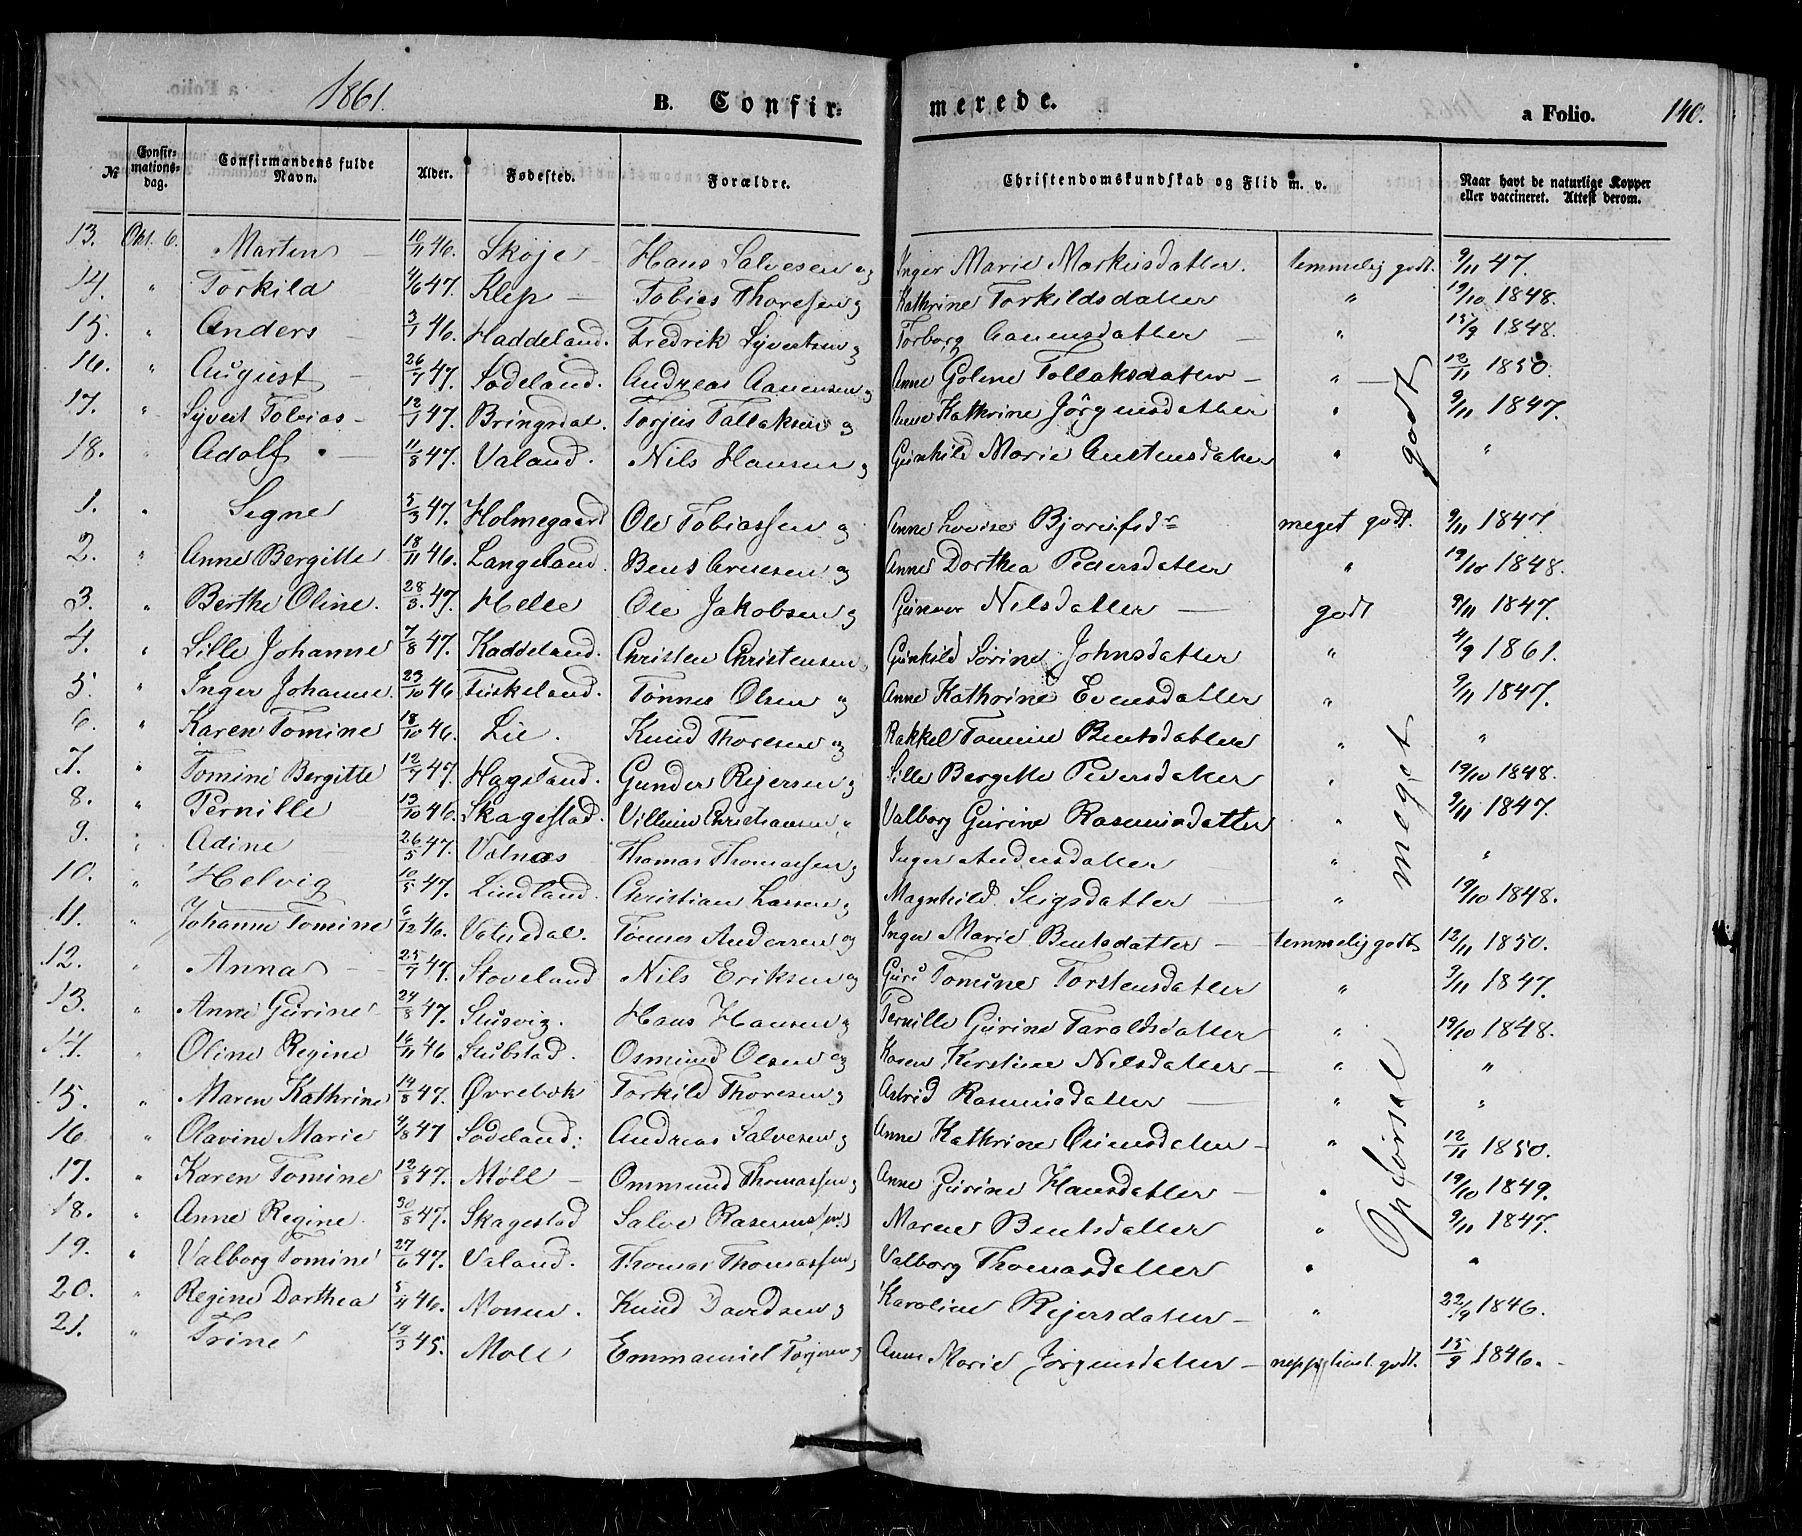 1861. B. Confir- merede. a Folio. 140.
№ Confirmationsdag. Confirmandens fulde Navn. Alder. Fødested. Forældre. Christendomskundskab og Flid m. v. Naar havt de naturlige Kopper eller vaccineret. Attest derom.
13. Okt. 6. Martin 10/11 46. Skøje Hans Salvesen og Inger Marie Markusdatter. temmelig godt. 9/11 47.
14. " Torkild 4/6 47. Klep Tobias Thoresen og Kathrine Torkildsdatter " 19/10 1848.
15. " Anders 3/1 46. Haddeland. Fredrik Syvertsen og Torborg Aanensdatter " 15/9 1848.
16. " August 26/7 47. Sødeland. Andreas Aanensen og Anne Goline Tollaksdatter " 12/11 1850.
17. " Syvert Tobias 12/1 47. Bringsdal. Torjus Tallaksen og Anne Kathrine Jörgensdatter " 9/11 1847.
18. " Adolf 11/8 47. Valand. Nils Hansen og Gunhild Marie Austensdatter " "
1. " Signe 5/3 47. Holmegaard Ole Tobiassen og Anne Lovise Bjornfsdr meget godt. 9/11 1847.
2. " Anne Bergitte 18/11 46. Langeland. Bent Arnesen og Anne Dorthea Pedersdatter " 19/10 1848.
3. " Berthe Oline. 28/3 47. Helle Ole Jakobsen og Gunvor Nilsdatter godt 9/11 1847.
4. " Sille Johanne 7/8 47. Haddeland. Christen Christensen Gunhild Sørine Johnsdatter " 4/9 1861.
5. " Inger Johanne 23/10 46 Fuskeland. Tönnes Olsen og Anne Kathrine Evensdatter " 9/11 1847.
6. " Karen Tomine 18/10 46. Lie. Knud Thoresen og Rakkel Tomine Bentsdatter " "
7. " Tomine Bergitte 12/7 47. Hageland. Gunder Rejersen og Sille Bergitte Pedersdatter " 19/10 1848.
8. " Pernille 13/10 46. Skagestad. Villum Christiansen " Valborg Gurine Rasmusdatter " 9/11 1847.
9. " Adine 26/5 47. Valnæs Thomas Thomassen og Inger Andersdatter " "
10. " Helvig 10/5 47. Lindland. Christian Larsen og Magnhild Seigsdatter " 19/10 1848.
11. " Johanne Tomine 6/12 46. Vatnedal. Tönnes Andersen og Inger Marie Bentsdatter temmelig godt 12/11 1850.
12. " Anna 25/7 47. Stoveland Nils Eriksen og Guri Tomine Torstensdatter " 9/11 1847.
13. " Anne Gurine 24/8 47. Slusvig. Hans Hansen og Pernille Gurine Taraldsdatter " 19/10 1848.
14. " Oline Regine 16/11 46 Stubstad. Osmund Olsen og Karen Kirstine Nilsdatter " "
15. " Maren Kathrine 14/8 47. Øvrebøk Torkild Thoresen og Astrid Rasmusdatter " "
16 " Olavine Marie 4/8 47 Sødeland. Andreas Salvesen og Anne Kathrine datter " 12/11 1850.
17. " Karen Tomine 12/8 47. Møll Ommund Thomassen og Anne Gurine Hansdatter " 19/10 1849.
18. " Anne Regine. 30/8 47. Skagestad Salve Rasmussen Maren Bentsdatter " 9/11 1847.
19. " Valborg Tomine 27/6 47. Valand. Thomas Thomassen og Valborg Thomasdatter " "
20. " Regine Dorthea 5/11 46. Monen. Knud Davidsen og Karoline Rejersdatter " 22/9 1846.
21. " Trine 19/3 45. Møll Emmanuel Torjesen og Anne Marie Jörgensdatter neppe godt. 15/9 1846.
Opførsel meget godt